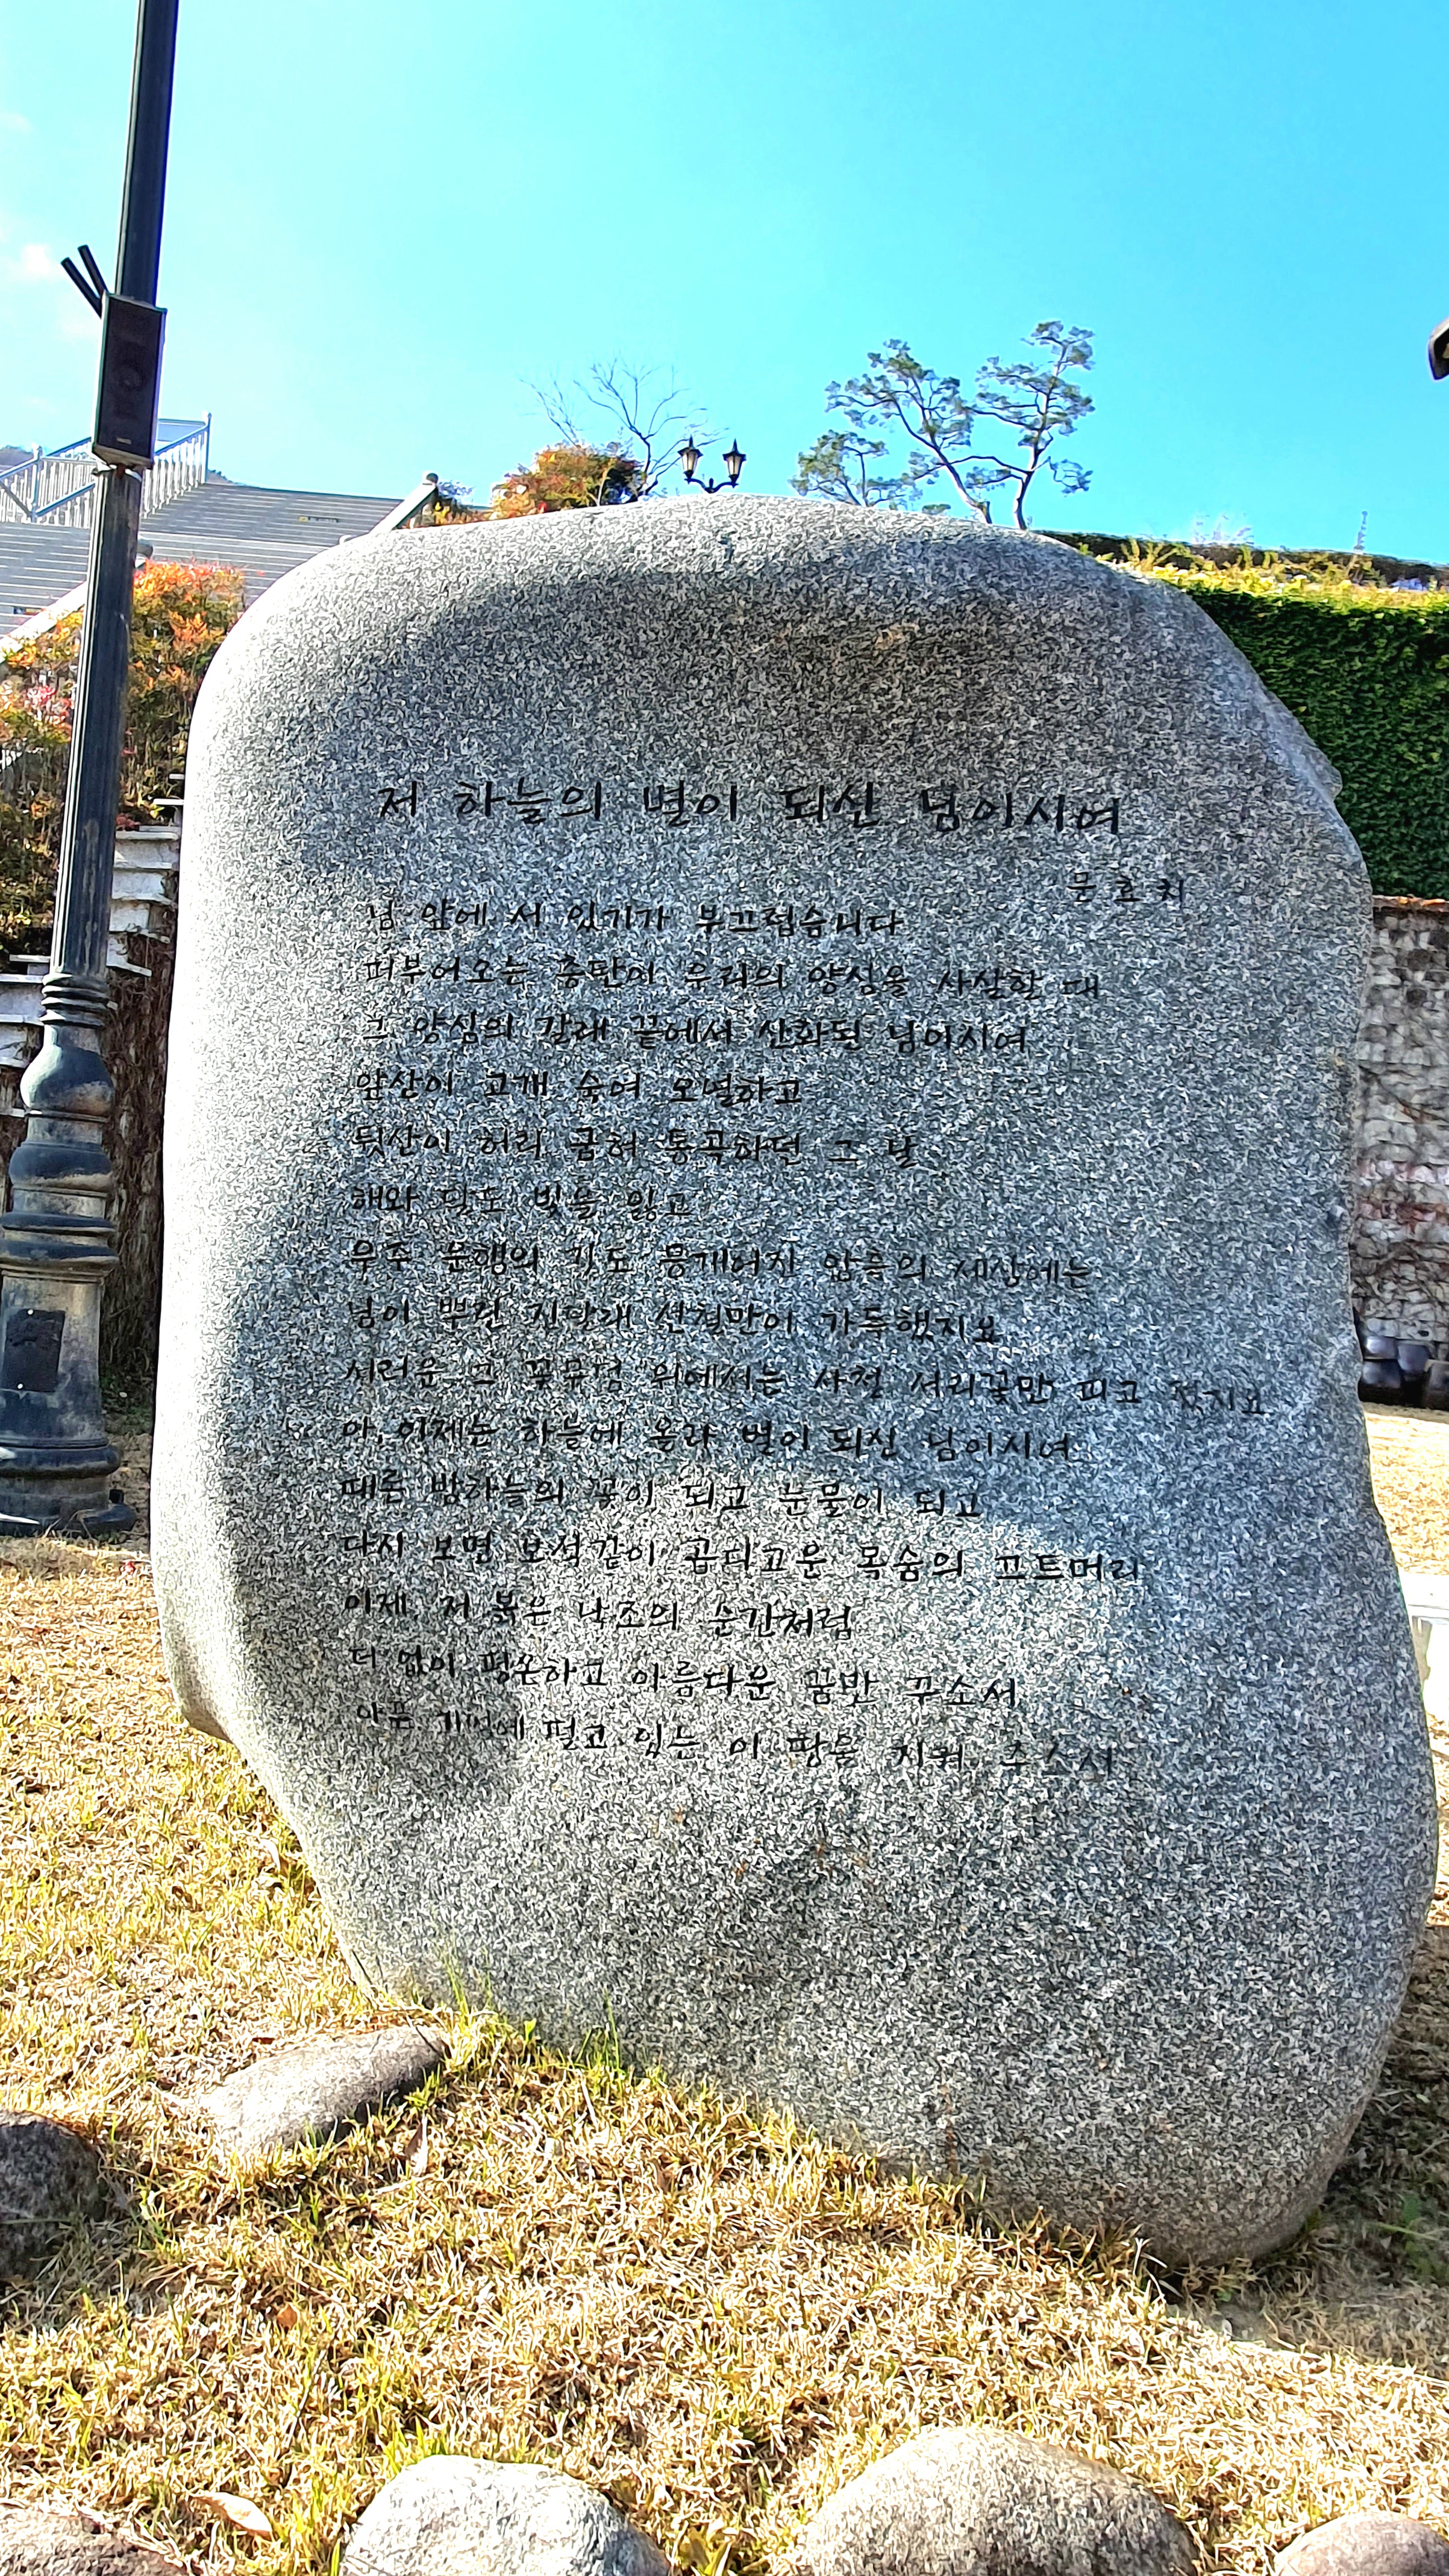 저 하늘의 별이 되신 님이시여
문효치
님 앞에 서 있기가 부끄럽습니다
퍼부어오는 총탄이 우리의 양심을 사살할 때
그 양심의 갈래 끝에서 산화된 님이시여
앞산이 고개 숙여 오열하고
뒷산이 허리 굽혀 통곡하던 그 날
해와 달도 빛을 잃고
우주 운행의 기도 뭉개어진 암흑의 세상에는
님이 뿌린 진달래 선혈만이 가득했지요
시러운 그 꽃무덤 위에서는 사철 서리꽃만 피고 졌지요
아, 이제는 하늘에 올라 별이 되신 님이시여
때론 밤하늘의 꽃이 되고 눈물이 되고
다시 보면 보석같이 곱디고운 목숨의 끄트머리
이제 저 붉은 낙조의 순간처럼
더 없이 평온하고 아름다운 꿈만 꾸소서
아픈 기억에 떨고 있는 이 땅을 지켜 주소서